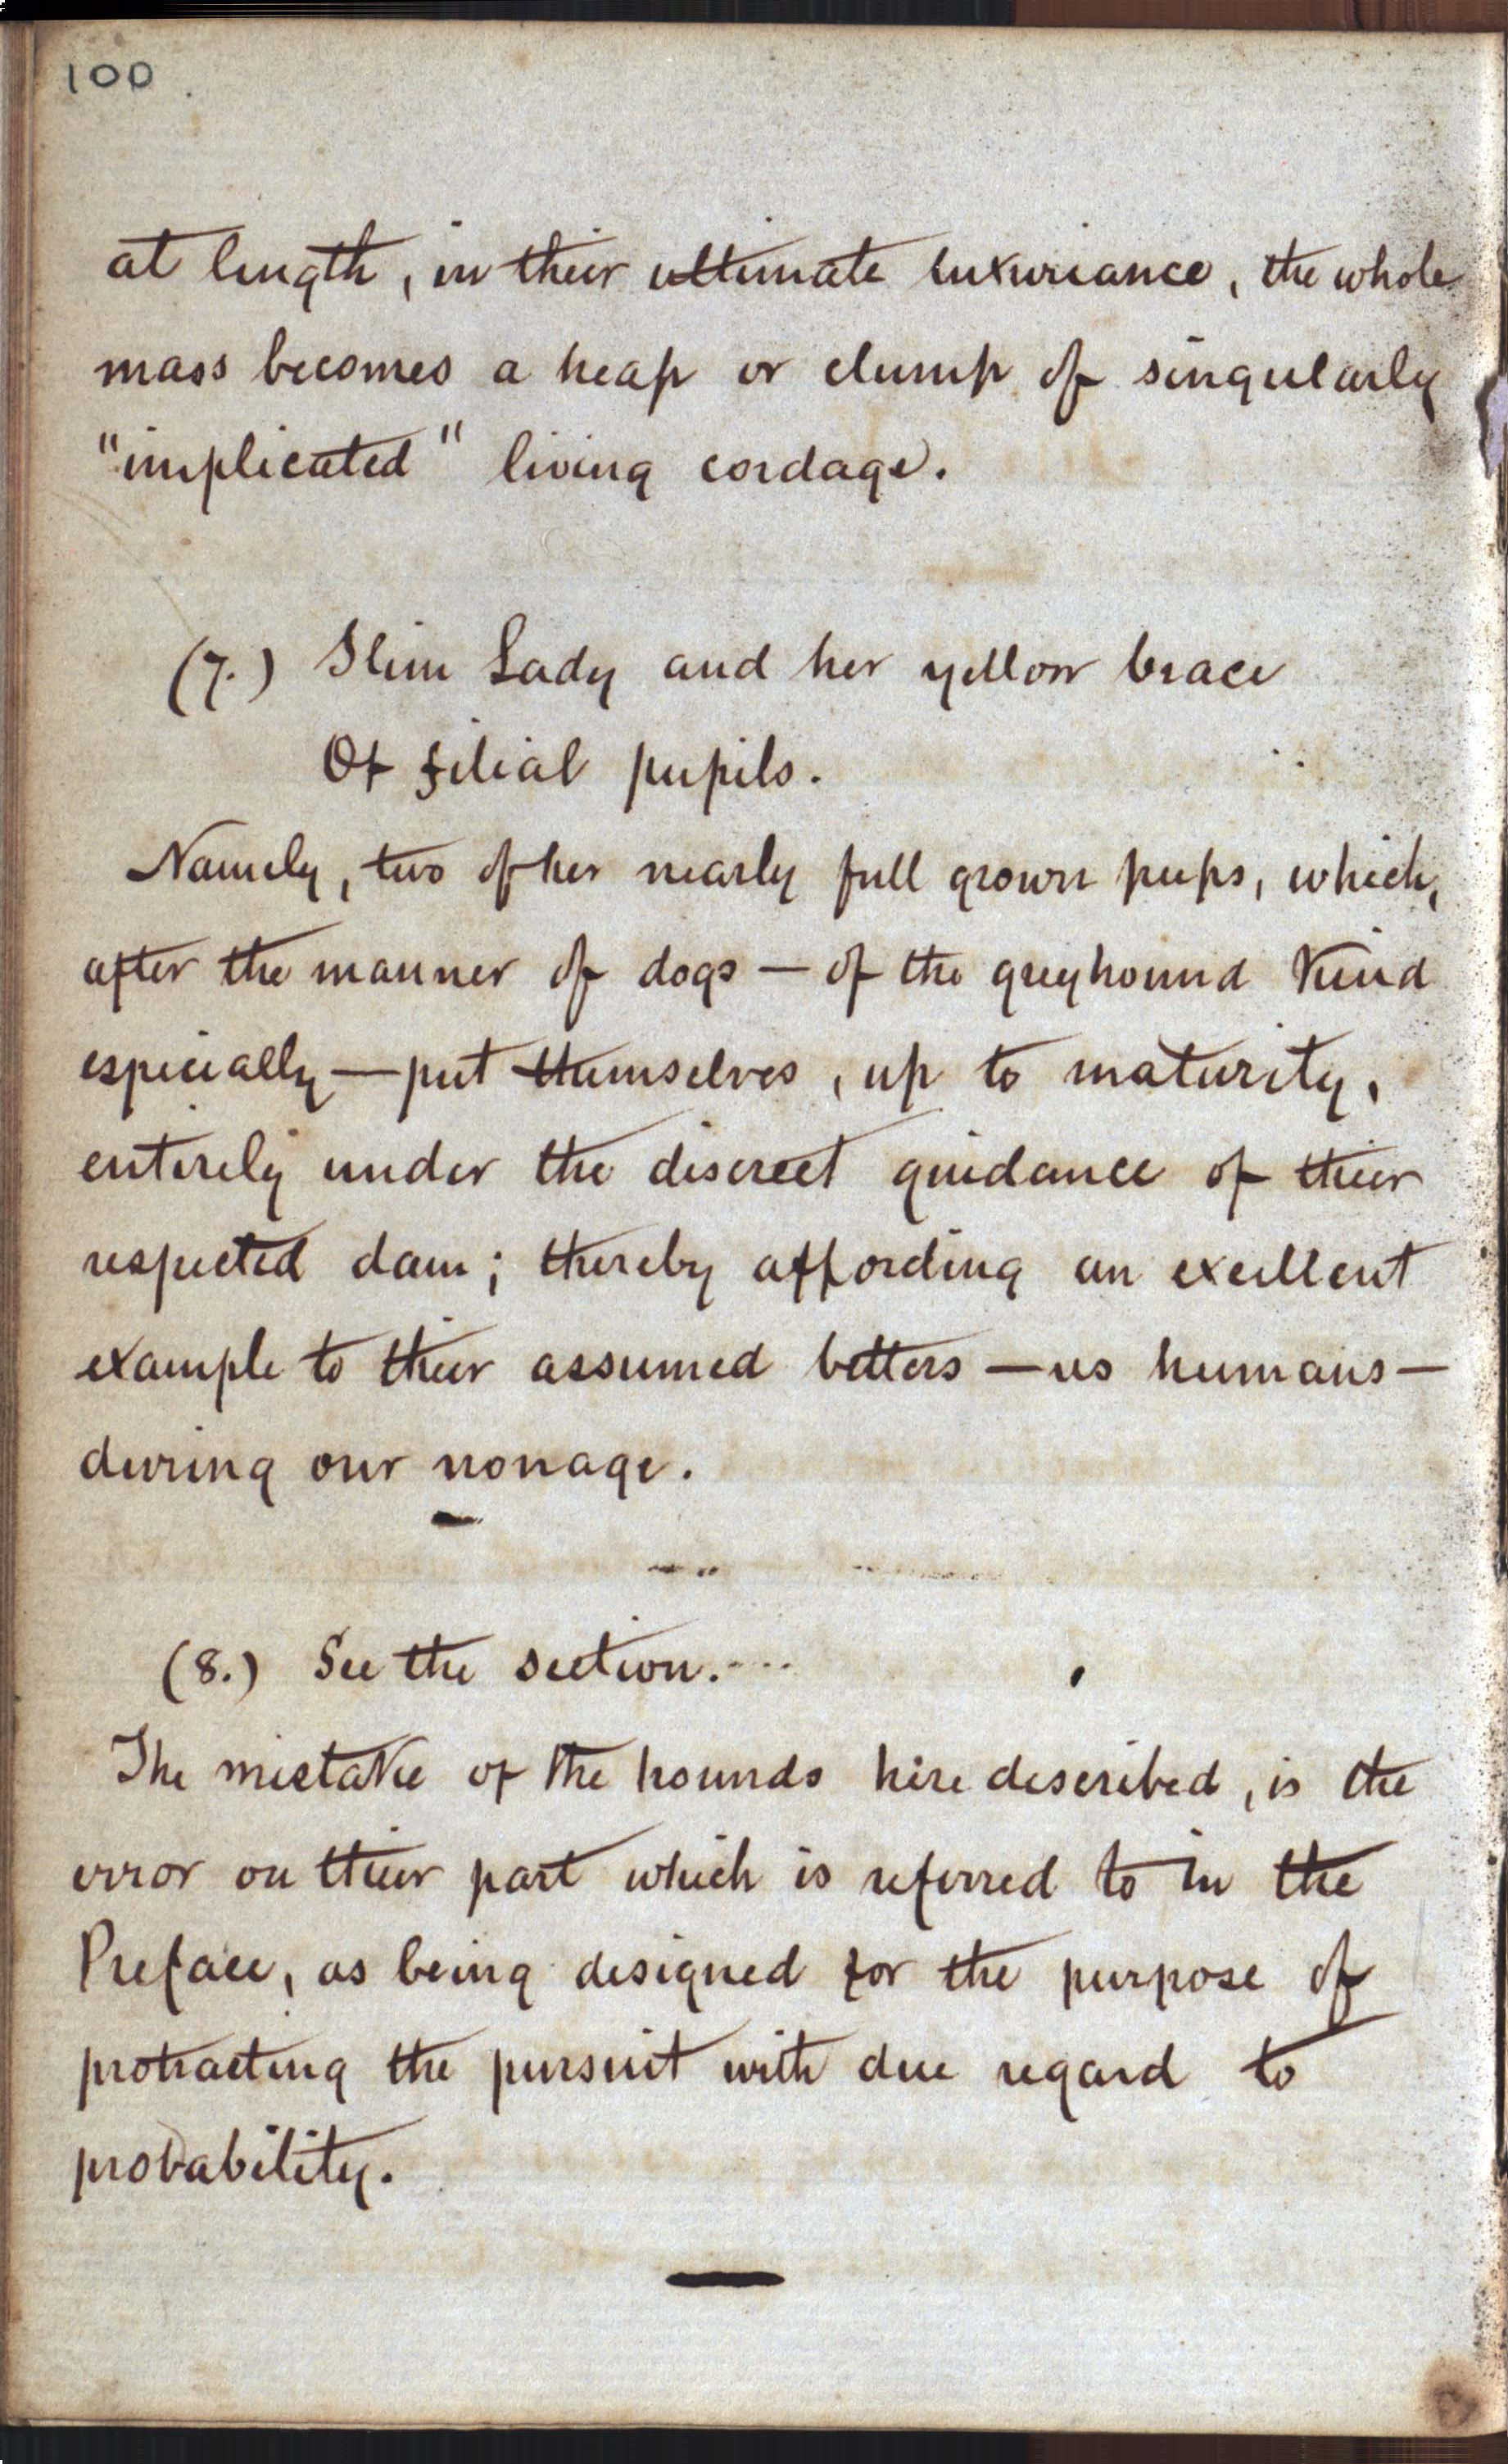 100
at length, in their ultimate luxuriance, the whole
mass becomes a heap or clump of singularly
"implicated" living cordage.
(7.) Slim Lady and her yellow brace
Of filial pupils.
Namely, two of her nearly full grown pups, which,
after the manner of dogs — of the greyhound kind
especially — put themselves, up to maturity,
entirely under the discreet guidance of their
respected dam; thereby affording an excellent
example to their assumed betters — us humans —
during our nonage.
(8.) See the section....
The mistake of the hounds here described, is the
error on their part which is referred to in the
Preface, as being designed for the purpose of
protracting the pursuit with due regard to
probability.